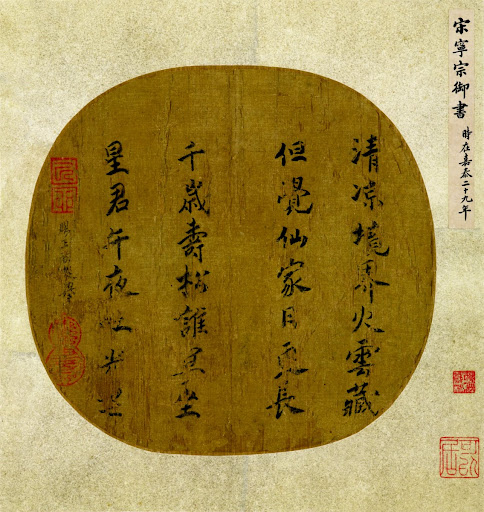 宋寧宗御書
時在嘉泰二十九年
清凉境界火雲藏
但覺仙家日更長
千歲壽松誰共坐
星君午夜光